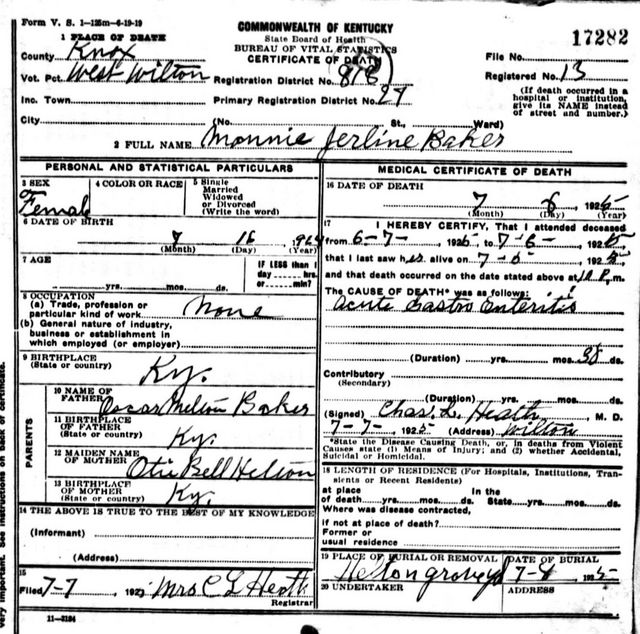 Form V. S. 1—125m—6-19-19
COMMONWEALTH OF KENTUCKY
State Board of Health
BUREAU OF VITAL STATISTICS
CERTIFICATE OF DEATH
17282
1 PLACE OF DEATH
County Knox
Vot. Pct. West Wilton
Inc. Town
City
Registration District No. 818
Primary Registration District No. 27
(No. St., Ward)
File No.
Registered No. 13
(If death occurred in a
hospital or institution,
give its NAME instead
of street and number.)
2 FULL NAME Monnie Jerline Baker
PERSONAL AND STATISTICAL PARTICULARS
3 SEX
Female
4 COLOR OR RACE
5 Single
Married
Widowed
or Divorced
(Write the word)
6 DATE OF BIRTH
7 16
(Month) (Day) (Year)
7 AGE
yrs. mos. ds.
IF LESS than 1
day hrs.
or min.
8 OCCUPATION
(a) Trade, profession or
particular kind of work None
(b) General nature of industry,
business or establishment in
which employed (or employer)
9 BIRTHPLACE
(State or country)
Ky.
PARENTS
10 NAME OF
FATHER
Oscar Melton Baker
11 BIRTHPLACE
OF FATHER
(State or country)
Ky.
12 MAIDEN NAME
OF MOTHER
Otie Bell Helton
13 BIRTHPLACE
OF MOTHER
(State or country)
Ky.
14 THE ABOVE IS TRUE TO THE BEST OF MY KNOWLEDGE
(Informant)
(Address)
15
Filed 7-7 1925 Mrs C L Heath
Registrar
11—3184
MEDICAL CERTIFICATE OF DEATH
16 DATE OF DEATH
7 6 1925
(Month) (Day) (Year)
17 I HEREBY CERTIFY, That I attended deceased
from 6-7- 1925, to 7-6- 1925
that I last saw h alive on 7-5 1925
and that death occurred on the date stated above at m.
The CAUSE OF DEATH* was as follows:
Acute Gastro Enteritis
(Duration) yrs. mos. 38 ds.
Contributory
(Secondary)
(Duration) yrs. mos. ds.
(Signed) Chas. L. Heath, M. D.
7-7- 1925 (Address) Wilton
*State the Disease Causing Death, or, in deaths from Violent
Causes state (1) Means of Injury; and (2) whether Accidental,
Suicidal or Homicidal.
18 LENGTH OF RESIDENCE (For Hospitals, Institutions, Tran-
sients or Recent Residents)
at place In the
of death yrs. mos. ds. State yrs. mos. ds.
Where was disease contracted,
if not at place of death?
Former or
usual residence
19 PLACE OF BURIAL OR REMOVAL
Helton
DATE OF BURIAL
7-8 1925
20 UNDERTAKER
ADDRESS
very important. See instructions on back of certificate.